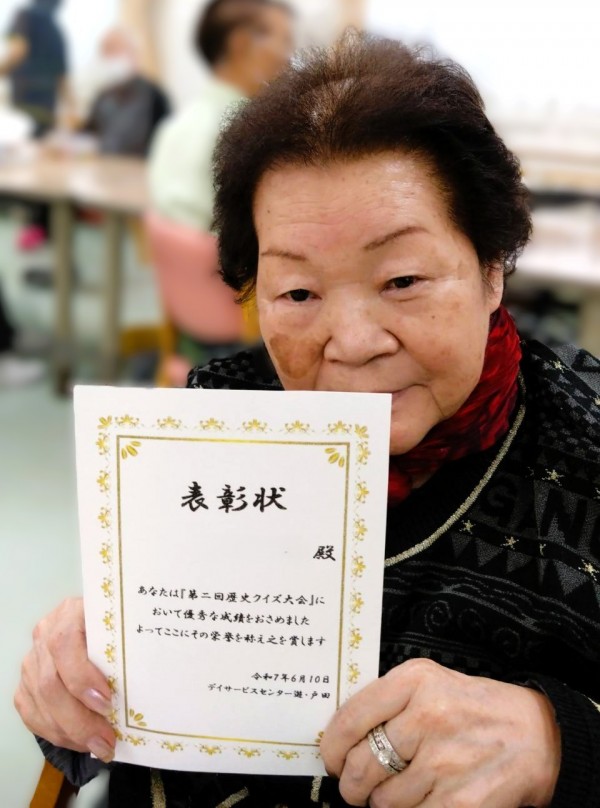 表彰状
殿
あなたは『第二回歴史クイズ大会』に
おいて優秀な成績をおさめました
よってここにその栄誉を称え之を賞します
令和7年6月10日
デイサービスセンター遊・戸田